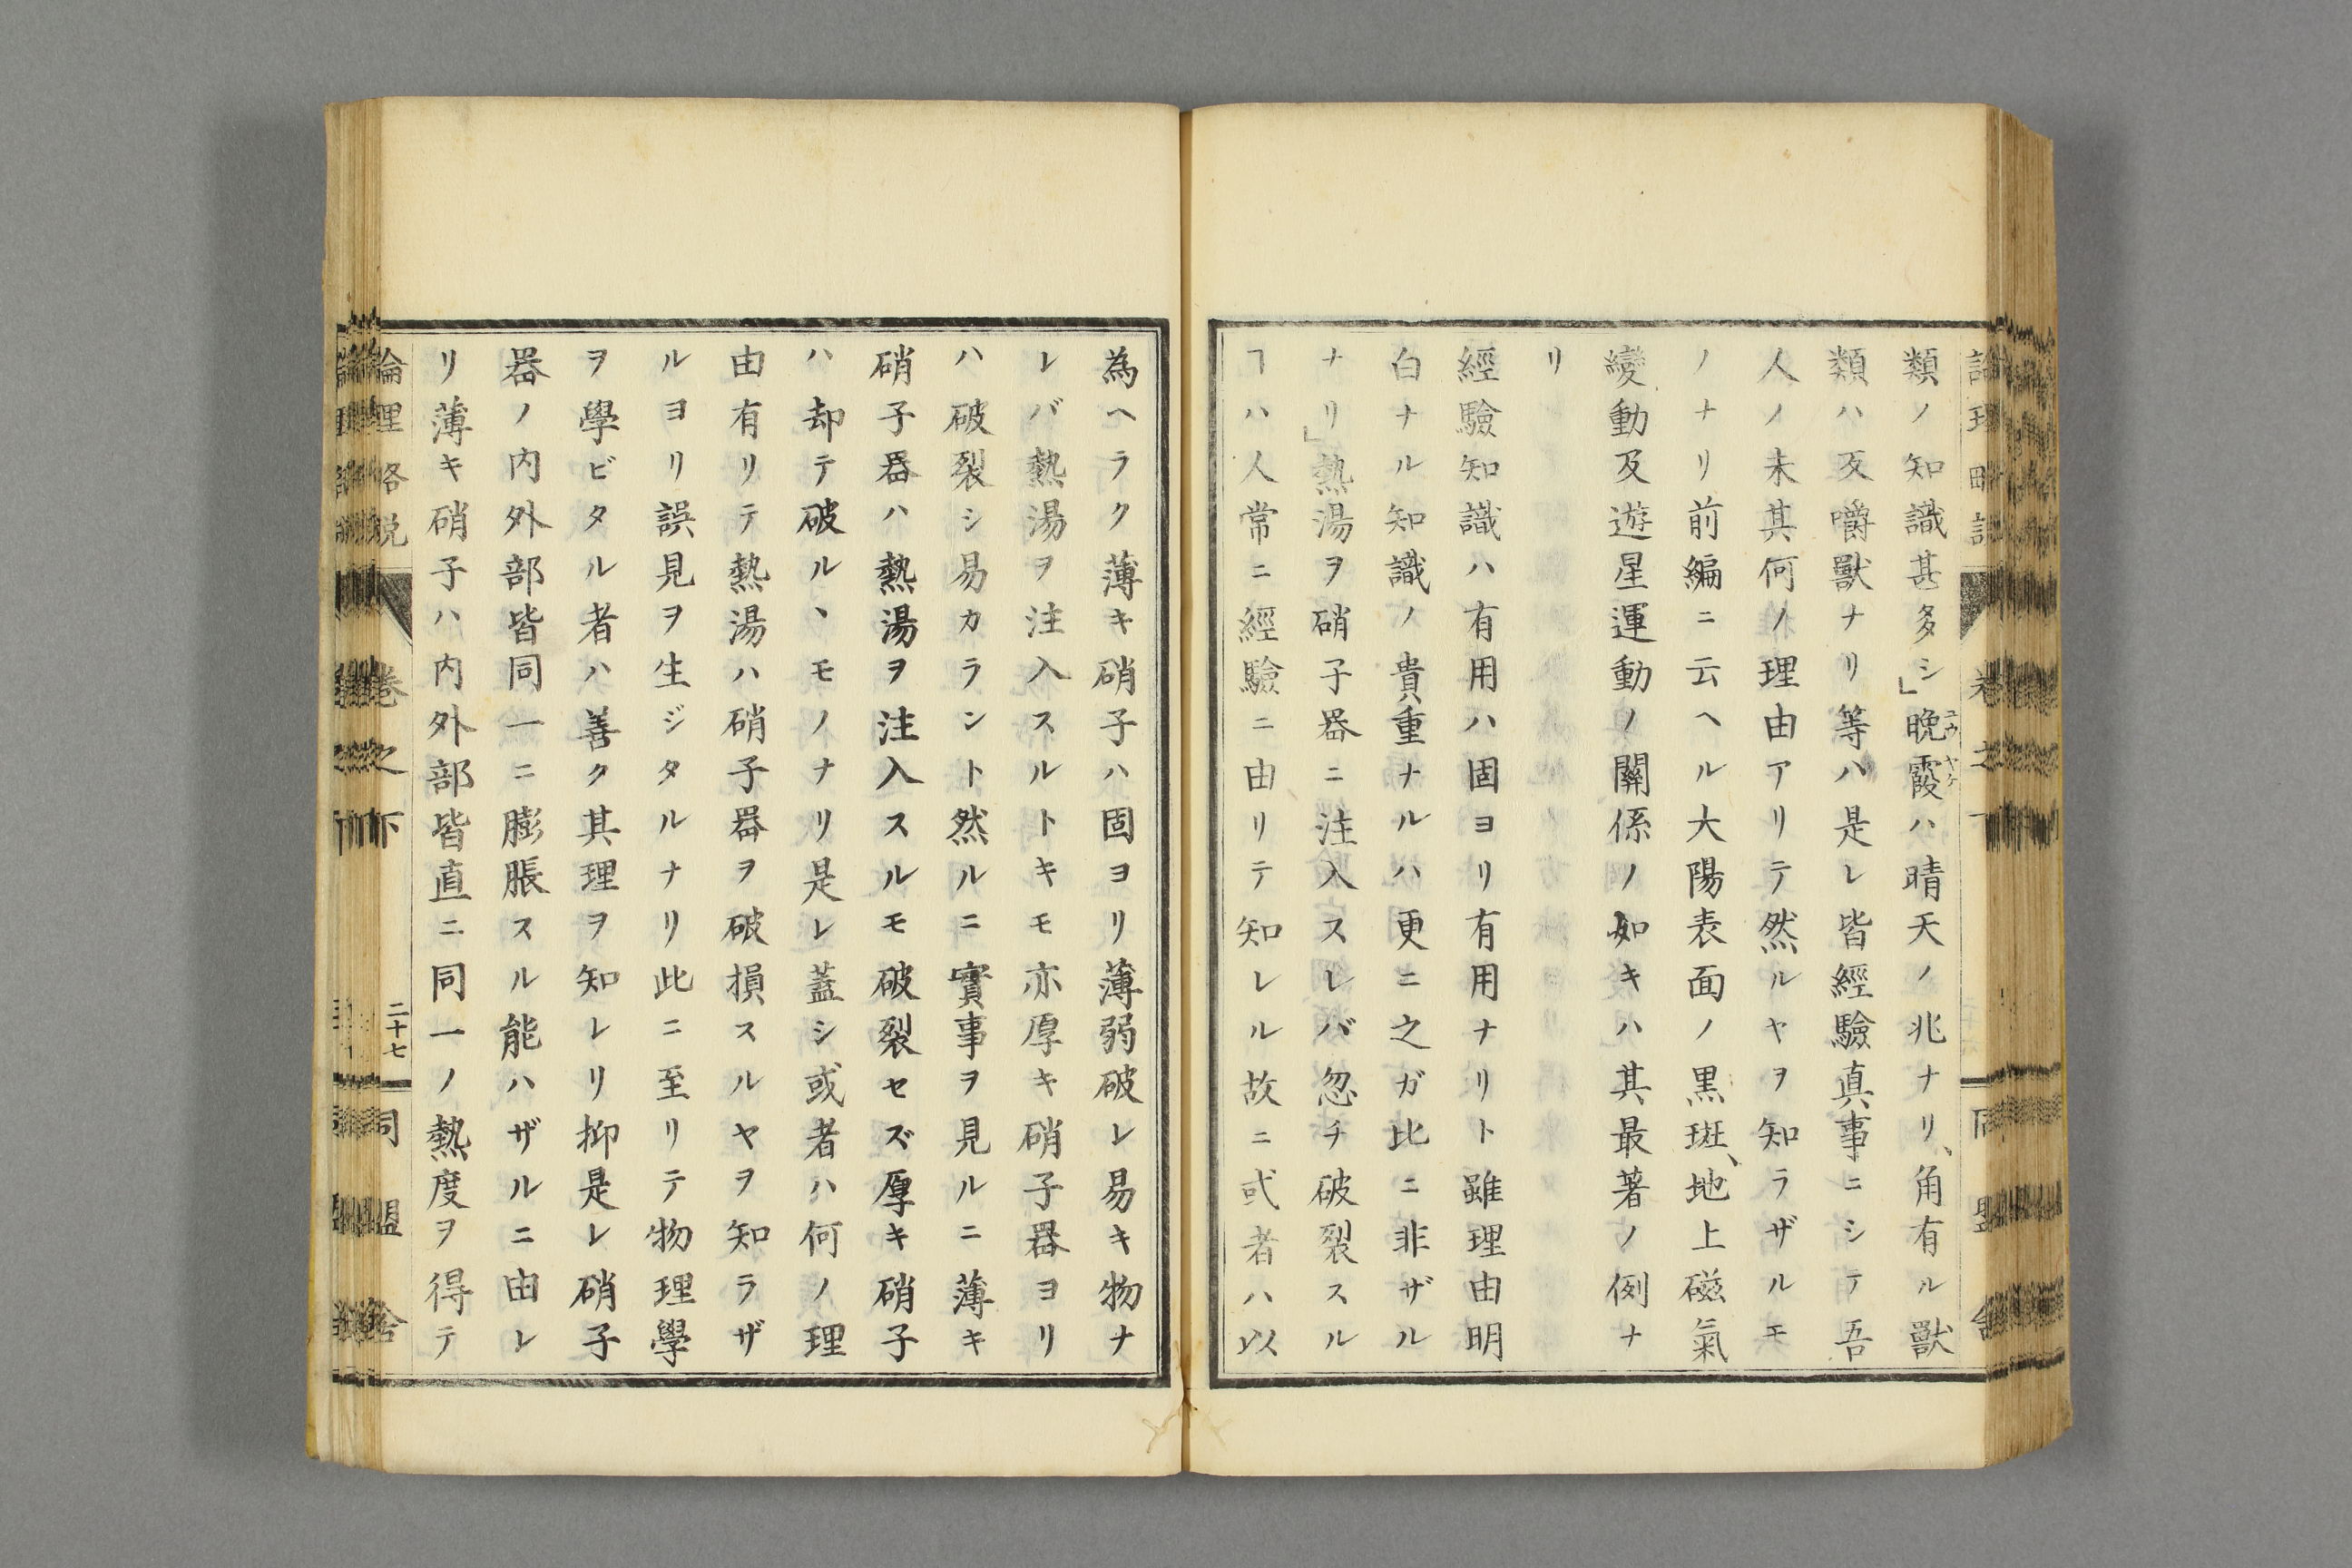 類ノ知識甚多シ」晩霞ハ晴天ノ兆ナリ、角有ル獸
ユウヤケ
類ハ反嚼獸ナリ等ハ是レ皆經驗真事ニシテ吾
人ノ未其何ノ理由アリテ然ルヤヲ知ラザルモ
ノナリ前編ニ云ヘル大陽表面ノ黒斑、地上磁氣
變動及遊星運動ノ關係ノ如キハ其最著ノ例ナ
リ
經驗知識ハ有用ハ固ヨリ有用ナリト雖理由明
白ナル知識ノ貴重ナルハ更ニ之ガ比ニ非ザル
ナリ」熱湯ヲ硝子器ニ注入スレバ忽チ破裂スル
ヿハ人常ニ經驗ニ由リテ知レル故ニ或者ハ以
為ヘラク薄キ硝子ハ固ヨリ薄弱破レ易キ物ナ
レバ熱湯ヲ注入スルトキモ亦厚キ硝子器ヨリ
ハ破裂シ易カラント然ルニ實事ヲ見ルニ薄キ
硝子器ハ熱湯ヲ注入スルモ破裂セズ厚キ硝子
ハ却テ破ルヽモノナリ是レ蓋シ或者ハ何ノ理
由有リテ熱湯ハ硝子器ヲ破損スルヤヲ知ラザ
ルヨリ誤見ヲ生ジタルナリ此ニ至リテ物理學
ヲ學ビタル者ハ善ク其理ヲ知レリ抑是レ硝子
器ノ内外部皆同一ニ膨脹スル能ハザルニ由レ
リ薄キ硝子ハ内外部皆直ニ同一ノ熱度ヲ得テ
論理略説
卷之下
二十七
同盟舎